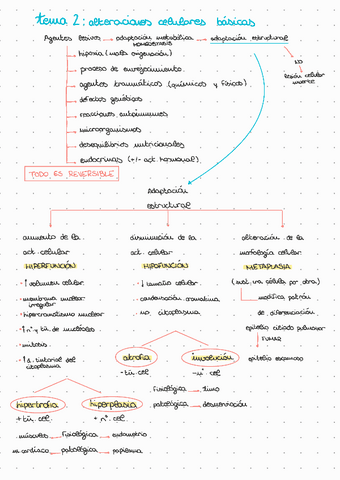 tema 2: alteraciones celulares básicas
Agentes lesivos adaptación metabólica adaptación estructural
HOMEOSTASIS
NO
hipoxia (mala oxigenación)
lesión celular
muerte
proceso de envejecimiento
agentes traumáticos (químicos y físicos)
defectos genéticos
reacciones autoinmunes
microorganismos
desequilibrios nutricionales
endocrinas (+/- act. hormonal)
TODO ES REVERSIBLE
adaptación
estructural
aumento de la
act. celular
HIPERFUNCIÓN
↑ volumen celular
membrana nuclear
irregular
hipercromatismo nuclear
↑ nº y tñ. de nucléolos
mitosis
↑ d. tintorial del
citoplasma
disminución de la
act. celular
HIPOFUNCIÓN
↓ tamaño celular
condensación cromatina
no, citoplasma
alteración de la
morfología celular
METAPLASIA
(sust. una célula por otra)
modifica patrón
de diferenciación
epitelio ciliado pulmonar
FUMAR
epitelio escamoso
atrofia
- tñ. cel
involución
- nº cel
fisiológica timo
patológica desnervación
hipertrofia
+ tñ. cel
hiperplasia
+ nº. cel
músculo fisiológica endometrio
m. cardiaco patológica papiloma